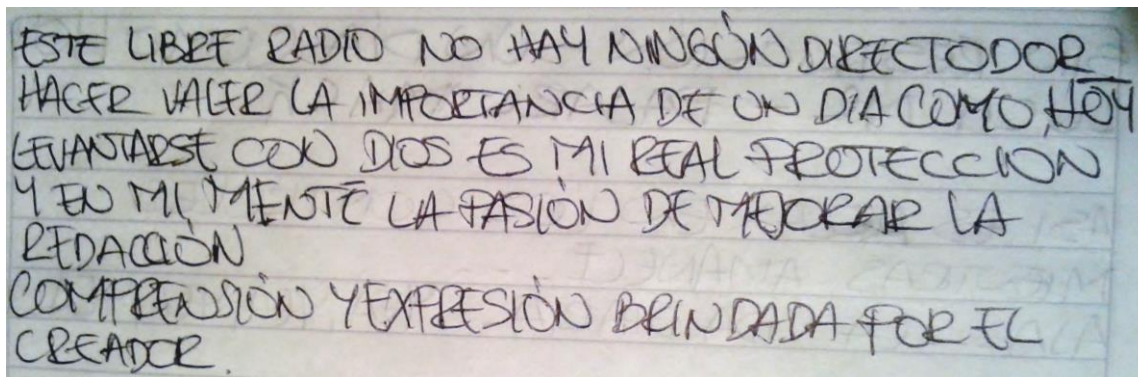 ESTE LIBRE RADIO NO HAY NINGÚN DIRECTODOR
HACER VALER LA IMPORTANCIA DE UN DIA COMO, HOY
LEVANTARSE CON DIOS ES MI REAL PROTECCION
Y EN MI, MENTE LA PASIÓN DE MEJORAR LA
REDACCIÓN
COMPRENSIÓN Y EXPRESIÓN BRINDADA POR EL
CREADOR.